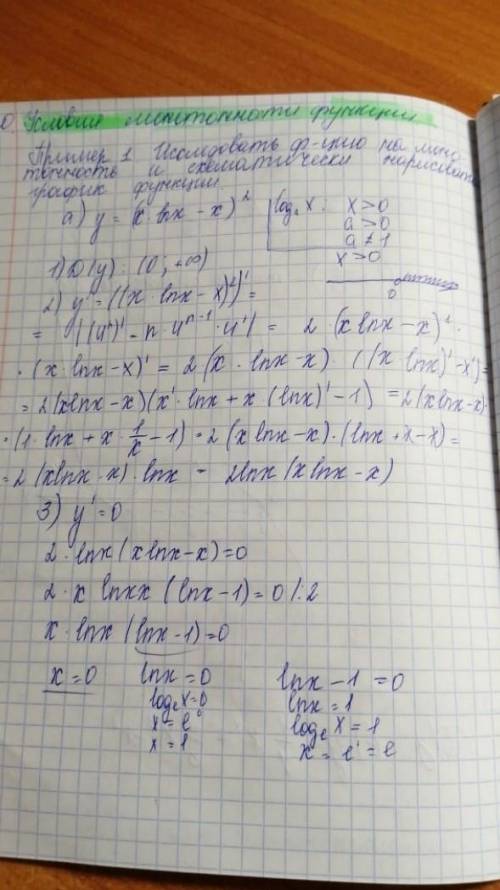 Условия монотонности функции
Пример 1 Исследовать ф-цию на моно
тонность и схематически нарисовать
график функции
a) y = (x·lnx - x)²
logₐ x : x > 0
a > 0
a ≠ 1
x > 0
1) D(y): (0; +∞)
0
2) y' = ((x·lnx - x)²)' =
= |(uⁿ)' = n·uⁿ⁻¹·u'| = 2(xlnx - x)¹·
·(x·lnx - x)' = 2(x·lnx - x) ((x lnx)' - x') =
= 2(xlnx - x)(x'·lnx + x(lnx)' - 1) = 2(xlnx - x)·
·(1·lnx + x·1/x - 1) = 2(xlnx - x)·(lnx + 1 - 1) =
= 2(xlnx - x)·lnx = 2lnx(xlnx - x)
3) y' = 0
2·lnx(xlnx - x) = 0
2·x lnx (lnx - 1) = 0 |:2
x·lnx(lnx - 1) = 0
x = 0 lnx = 0 lnx - 1 = 0
logₑ x = 0 lnx = 1
x = e⁰ logₑ x = 1
x = 1 x = e¹ = e